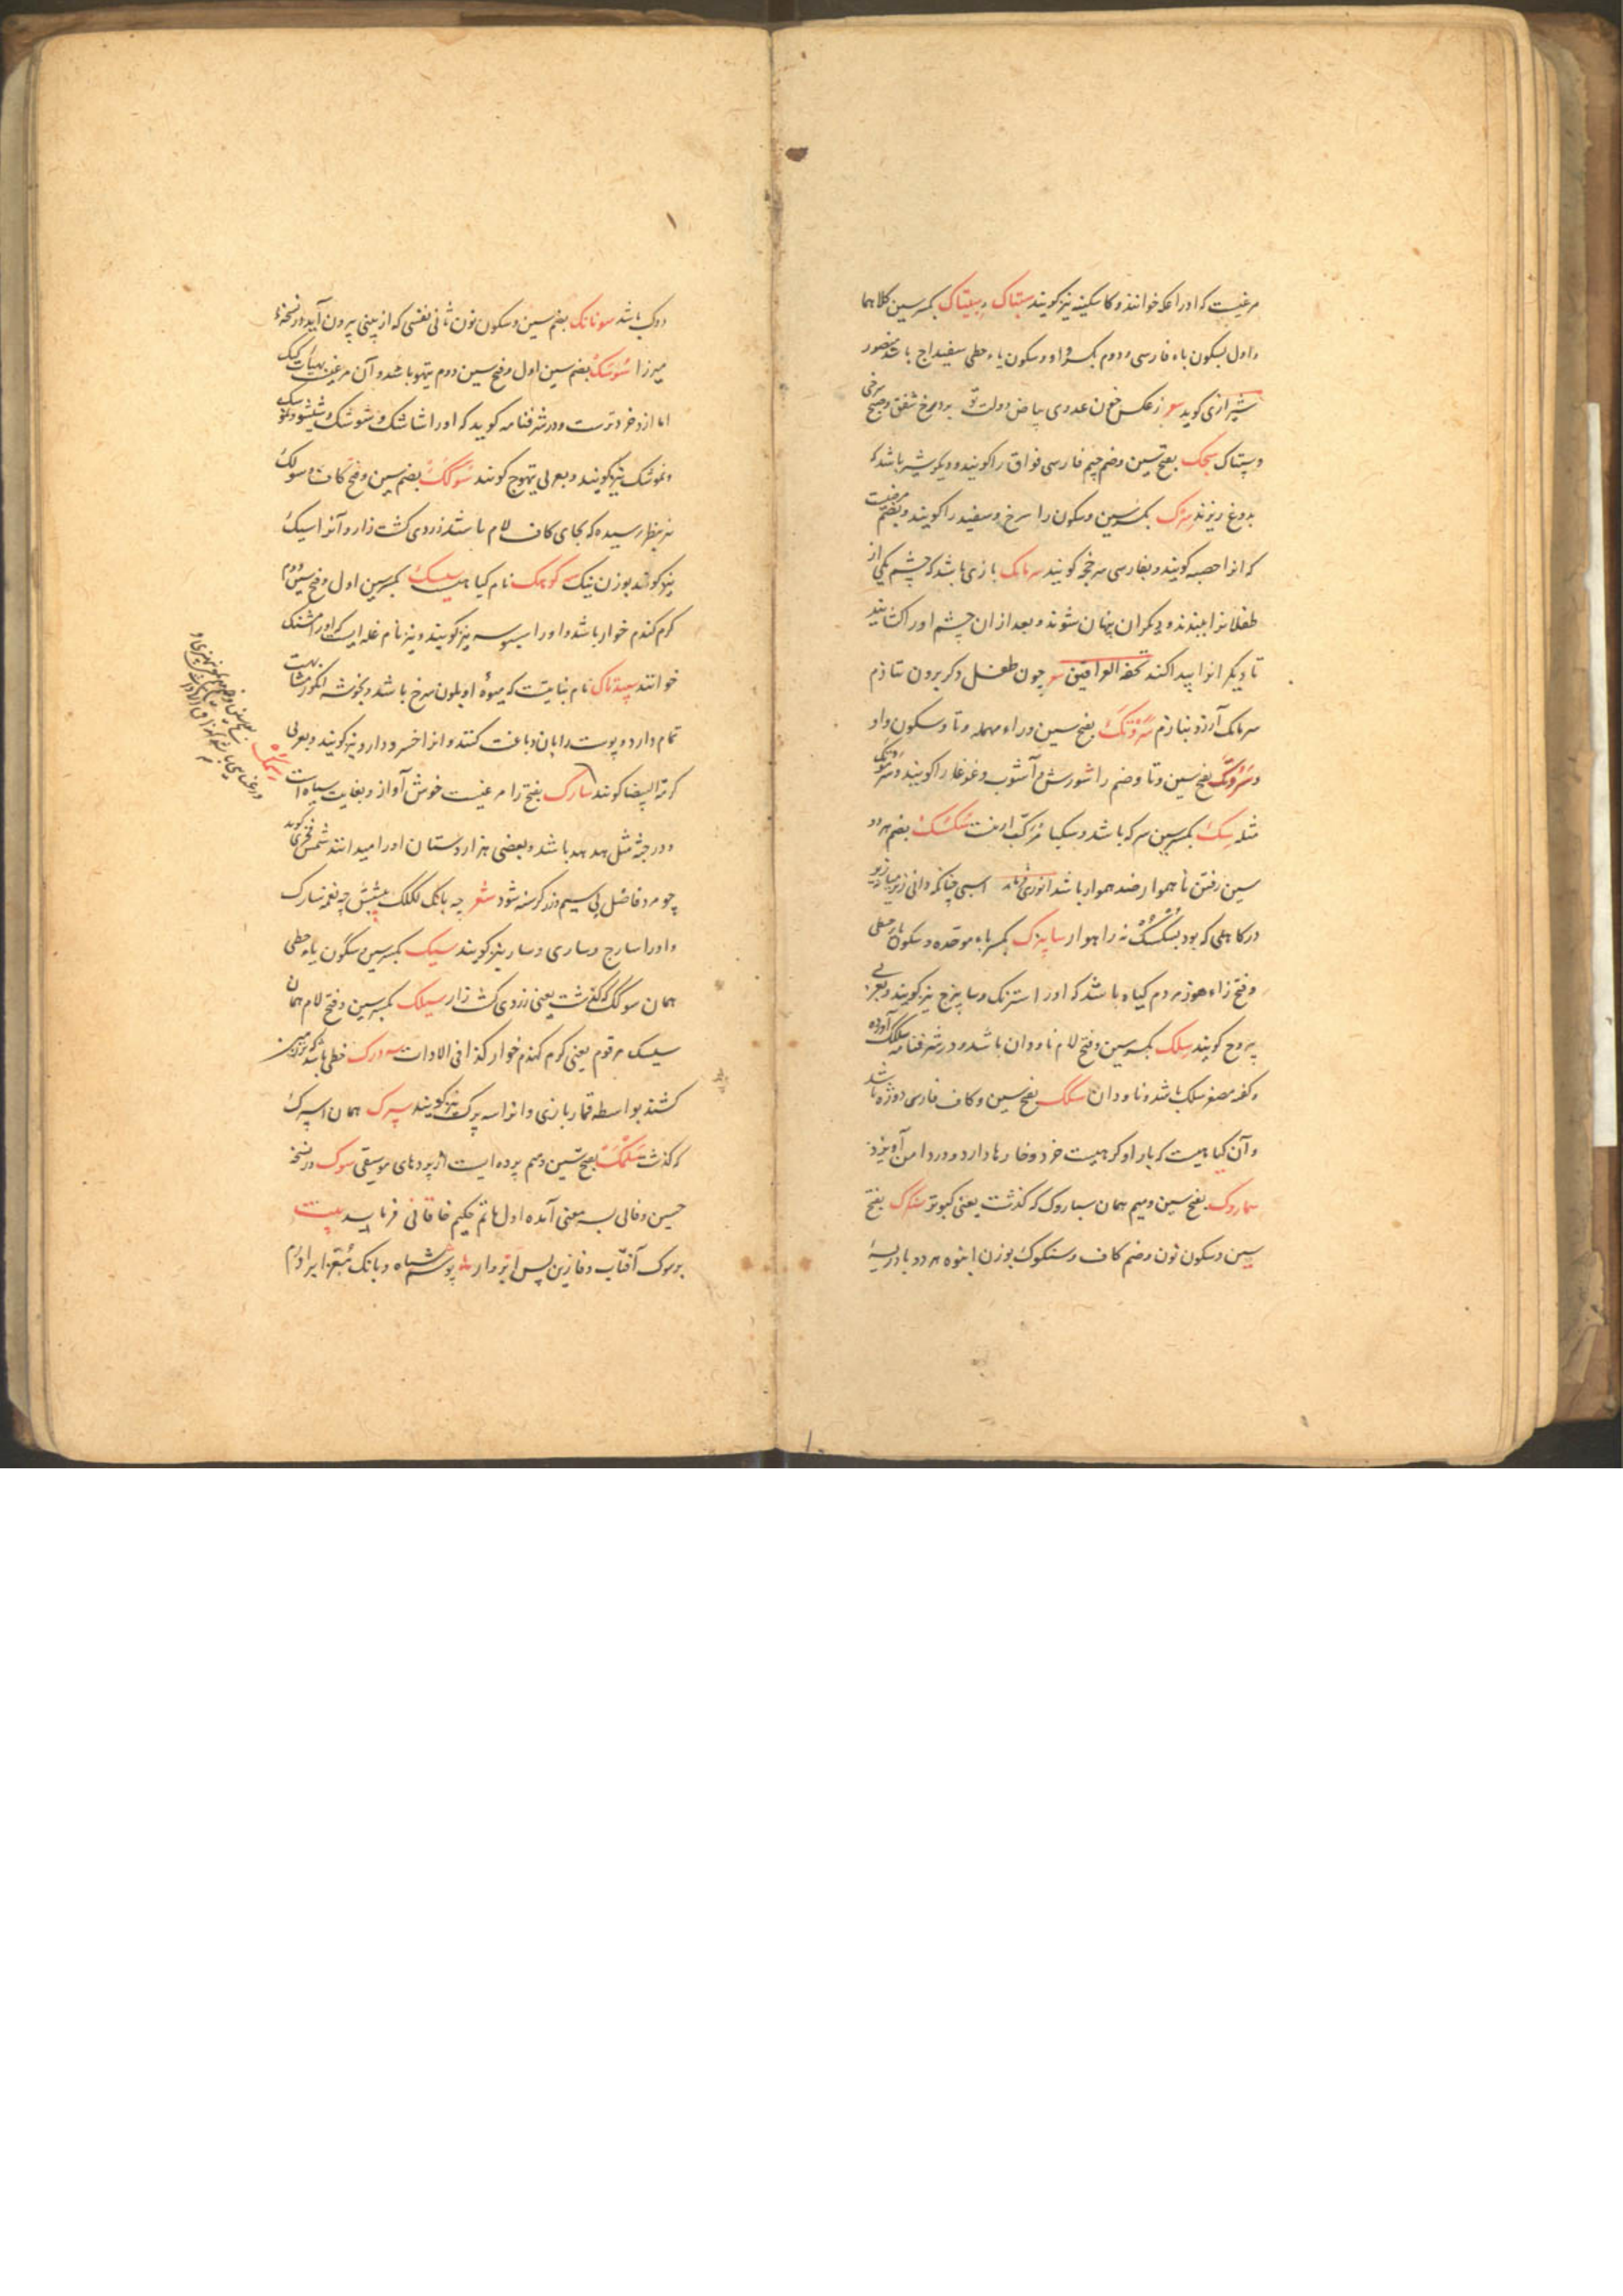 مرغیست که او را عکه خوانند و کاسکینه نیز گویند سپتاک و سیتاک بکسر سین کلاهما
و اول بسکون باء فارسی و دوم بکسر او و سکون یاء حطی سفیداج باشد منصور
شیرازی گوید شعر ز عکس خون عدوی بیاض دولت تو برد مرخ شفق و صبح سرخی
و سپتاک سجک بفتح سین و ضم جیم فارسی فواق را گویند و دیگر شیر باشد که
بدوغ ریزند سرک بکسر سین و سکون را سرخ و سفید را گویند و بضم مرضیست
که انرا حصبه گویند و بفارسی سرخجه گویند سرمامک بازی باشد که چشم یکی از
طفلانرا ببندند و دیگران پنهان شوند و بعد ازان چشم او را گشایند
تا دیگرانرا پیدا کند تحفة العراقین شعر چون طفل دگر برون نتازم
سرمامک آرزو نبازم سروتک بفتح سین و راء مهمله و تا و سکون واو
و سروتک بفتح سین و تا و ضم را شورش و آشوب و غوغا را گویند و سرتوک
مثله سک بکسر سین سرکه باشد و سکبا مرکب ازینست سکسک بضم هر دو
سین رفتن ناهموار ضد هموار باشد انوری فرماید اسبی چنانکه دانی زیر میانه زیر
در کاهلی که بود بسکسک نه راهوار سابیزک بکسر باء موحده و سکون یاء حطی
و فتح زاء هوز مردم گیاه باشد که او را استرنگ و سابیزج نیز گویند و بعربی
یبروح گویند سلک بکسر سین و فتح لام ناودان باشد و در شرفنامه سلکک آورده
و گفته مصغر سلک باشد و ناودان سگک بفتح سین و کاف فارسی دوژه باشد
و آن گیاهیست که بار او گرهیست خرد و خارها دارد و در دامن آویزد
سماروک بفتح سین و میم همان سباروک که گذشت یعنی کبوتر سنگک بفتح
سین و سکون نون و ضم کاف و سنکوک بوزن انبوه هر دو بادریسه
دوک باشد سونانک بضم سین و سکون نون ثانی نفسی که از بینی بیرون آید در نسخهٔ
میرزا سوسک بضم سین اول و فتح سین دوم تیهو باشد و آن مرغیست بهیات کبک
اما ازو خردترست و در شرفنامه گوید که او را شاشک و شوشک و شیشو
و نموشک نیز گویند و بعربی تیهوج گویند سوکک بضم سین و فتح کاف و سولک
نیز بنظر رسیده که بجای کاف لام باشد زردی کشت زار و آنرا سیک
نیز گویند بوزن نیک سه گوهک نام گیاهیست سیسک بکسر سین اول و فتح سین دوم
کرم گندم خوار باشد و او را سبوسه نیز گویند و نیز نام غله ایست که او را مشنک
خوانند سپیدتاک نام نباتیست که میوهٔ او بلون سرخ باشد و بخوشه انگور مشابهت
تمام دارد و پوست را بان دباغت کنند و انرا خسرو دارو نیز گویند و بعربی
کرمة البیضا گویند سارک بفتح را مرغیست خوش آواز و بغایت سیاه است
و در جثه مثل هدهد باشد و بعضی هزاردستان او را میدانند شمس فخری گوید
چو مرد فاضل بی سیم و زر گرسنه شود شعر چه بانگ لکلک پیشش چه نغمه سارک
و او را سارج و ساری و سار نیز گویند سیک بکسر سین و سکون یاء حطی
همان سوکک که گذشت یعنی زردی کشت زار سیلک بکسر سین و فتح لام همان
سیسک مرقوم یعنی کرم گندم خوار کذا فی الادات سه درک خطی باشد که بر زمین
کشند بواسطه قمار بازی و انرا سه پرک نیز گویند سپرک همان اسپرک
که گذشت سلمک بفتح سین و میم پرده ایست از پردهای موسیقی سوک در نسخهٔ
حسین وفائی بسه معنی آمده اول ماتم حکیم خاقانی فرماید بیت
بر سوک آفتاب وفا زین پس ابروار پوشم سیاه و بانگ معزا برآورم